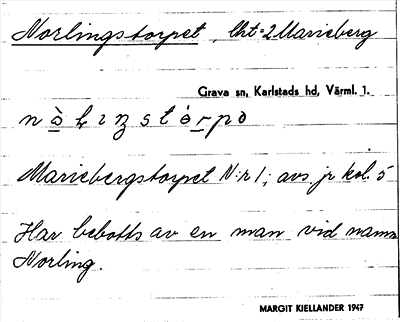 Norlingstorpet, lht=2 Marieberg
Grava sn, Karlstads hd, Värml. l.
Mariebergstorpet N:r 1; avs. jr kol. 5
Har bebotts av en man vid namn
Norling.
MARGIT KIELLANDER 1947